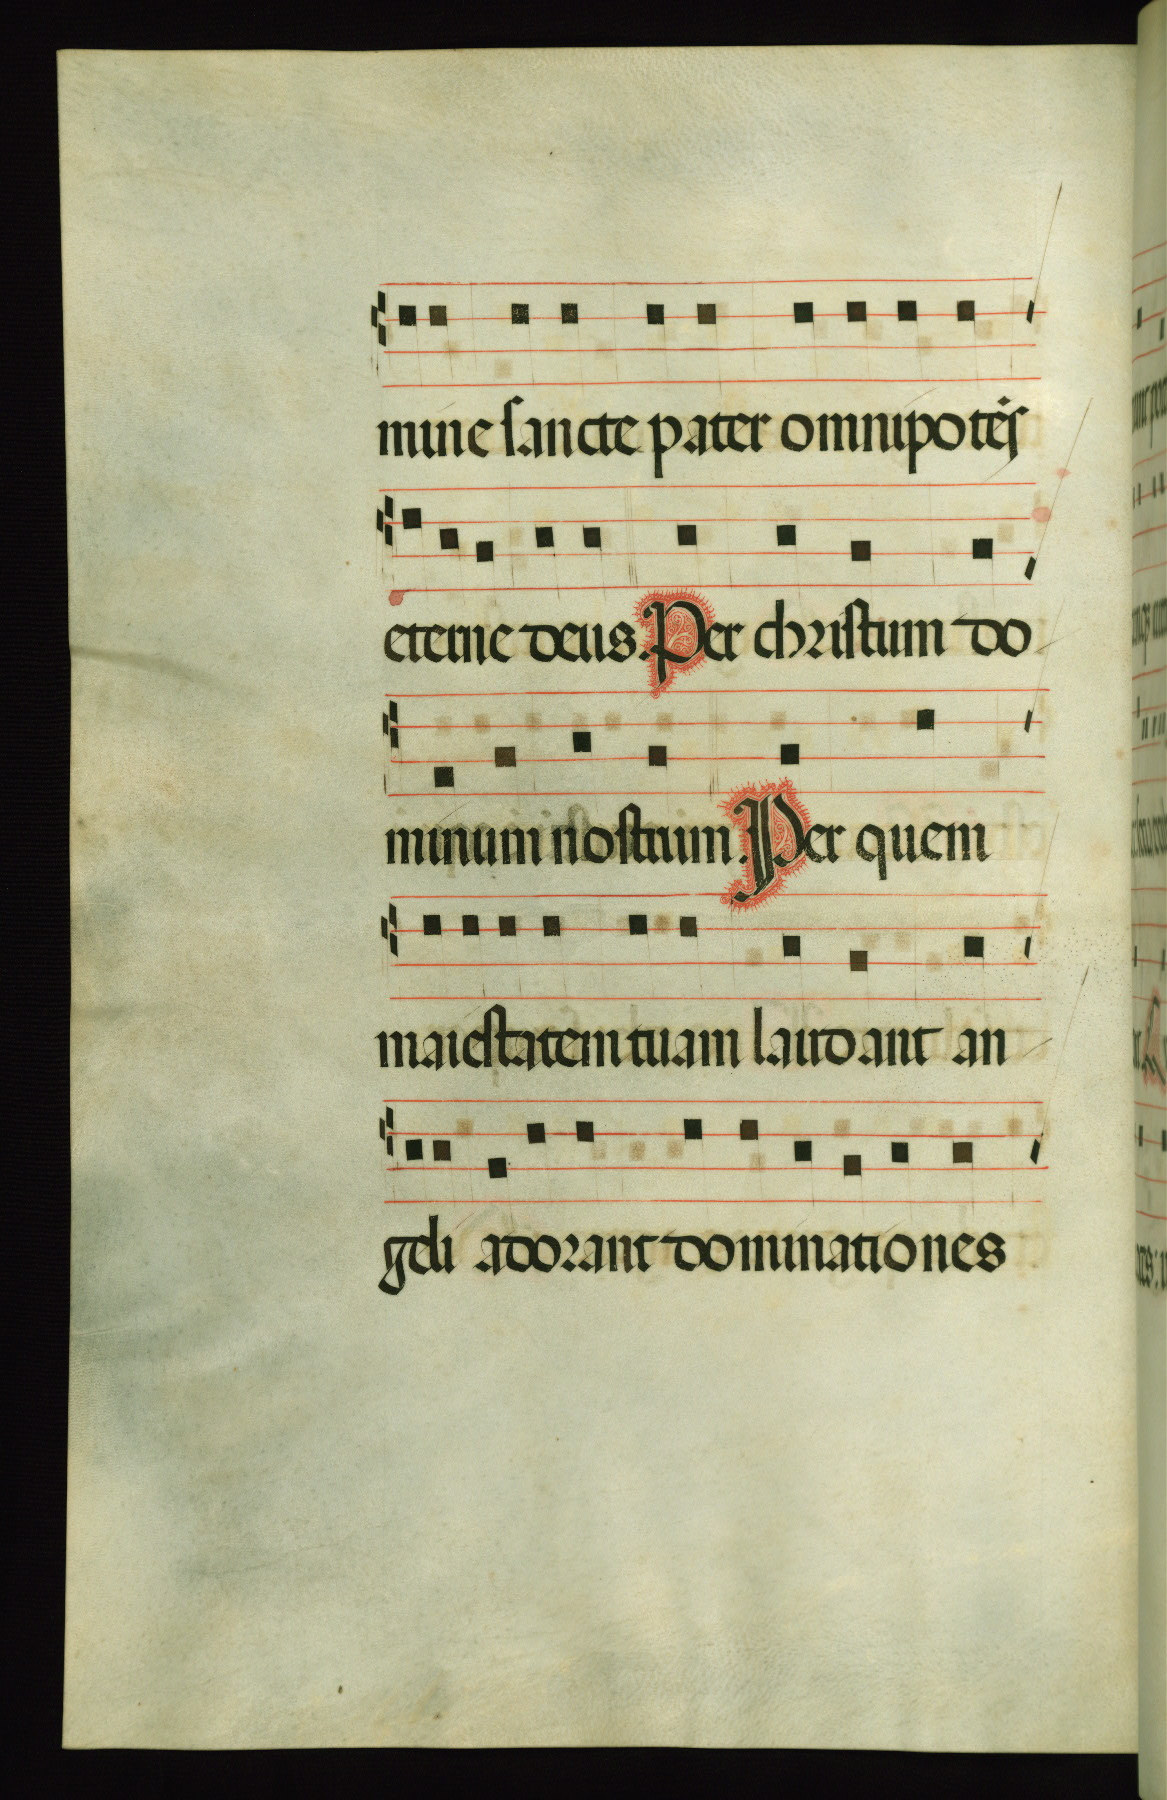 mine sancte pater omnipotẽs
eterne deus. Per christum do
minum nostrum. Per quem
maiestatem tuam laudant an
geli adorant dominationes